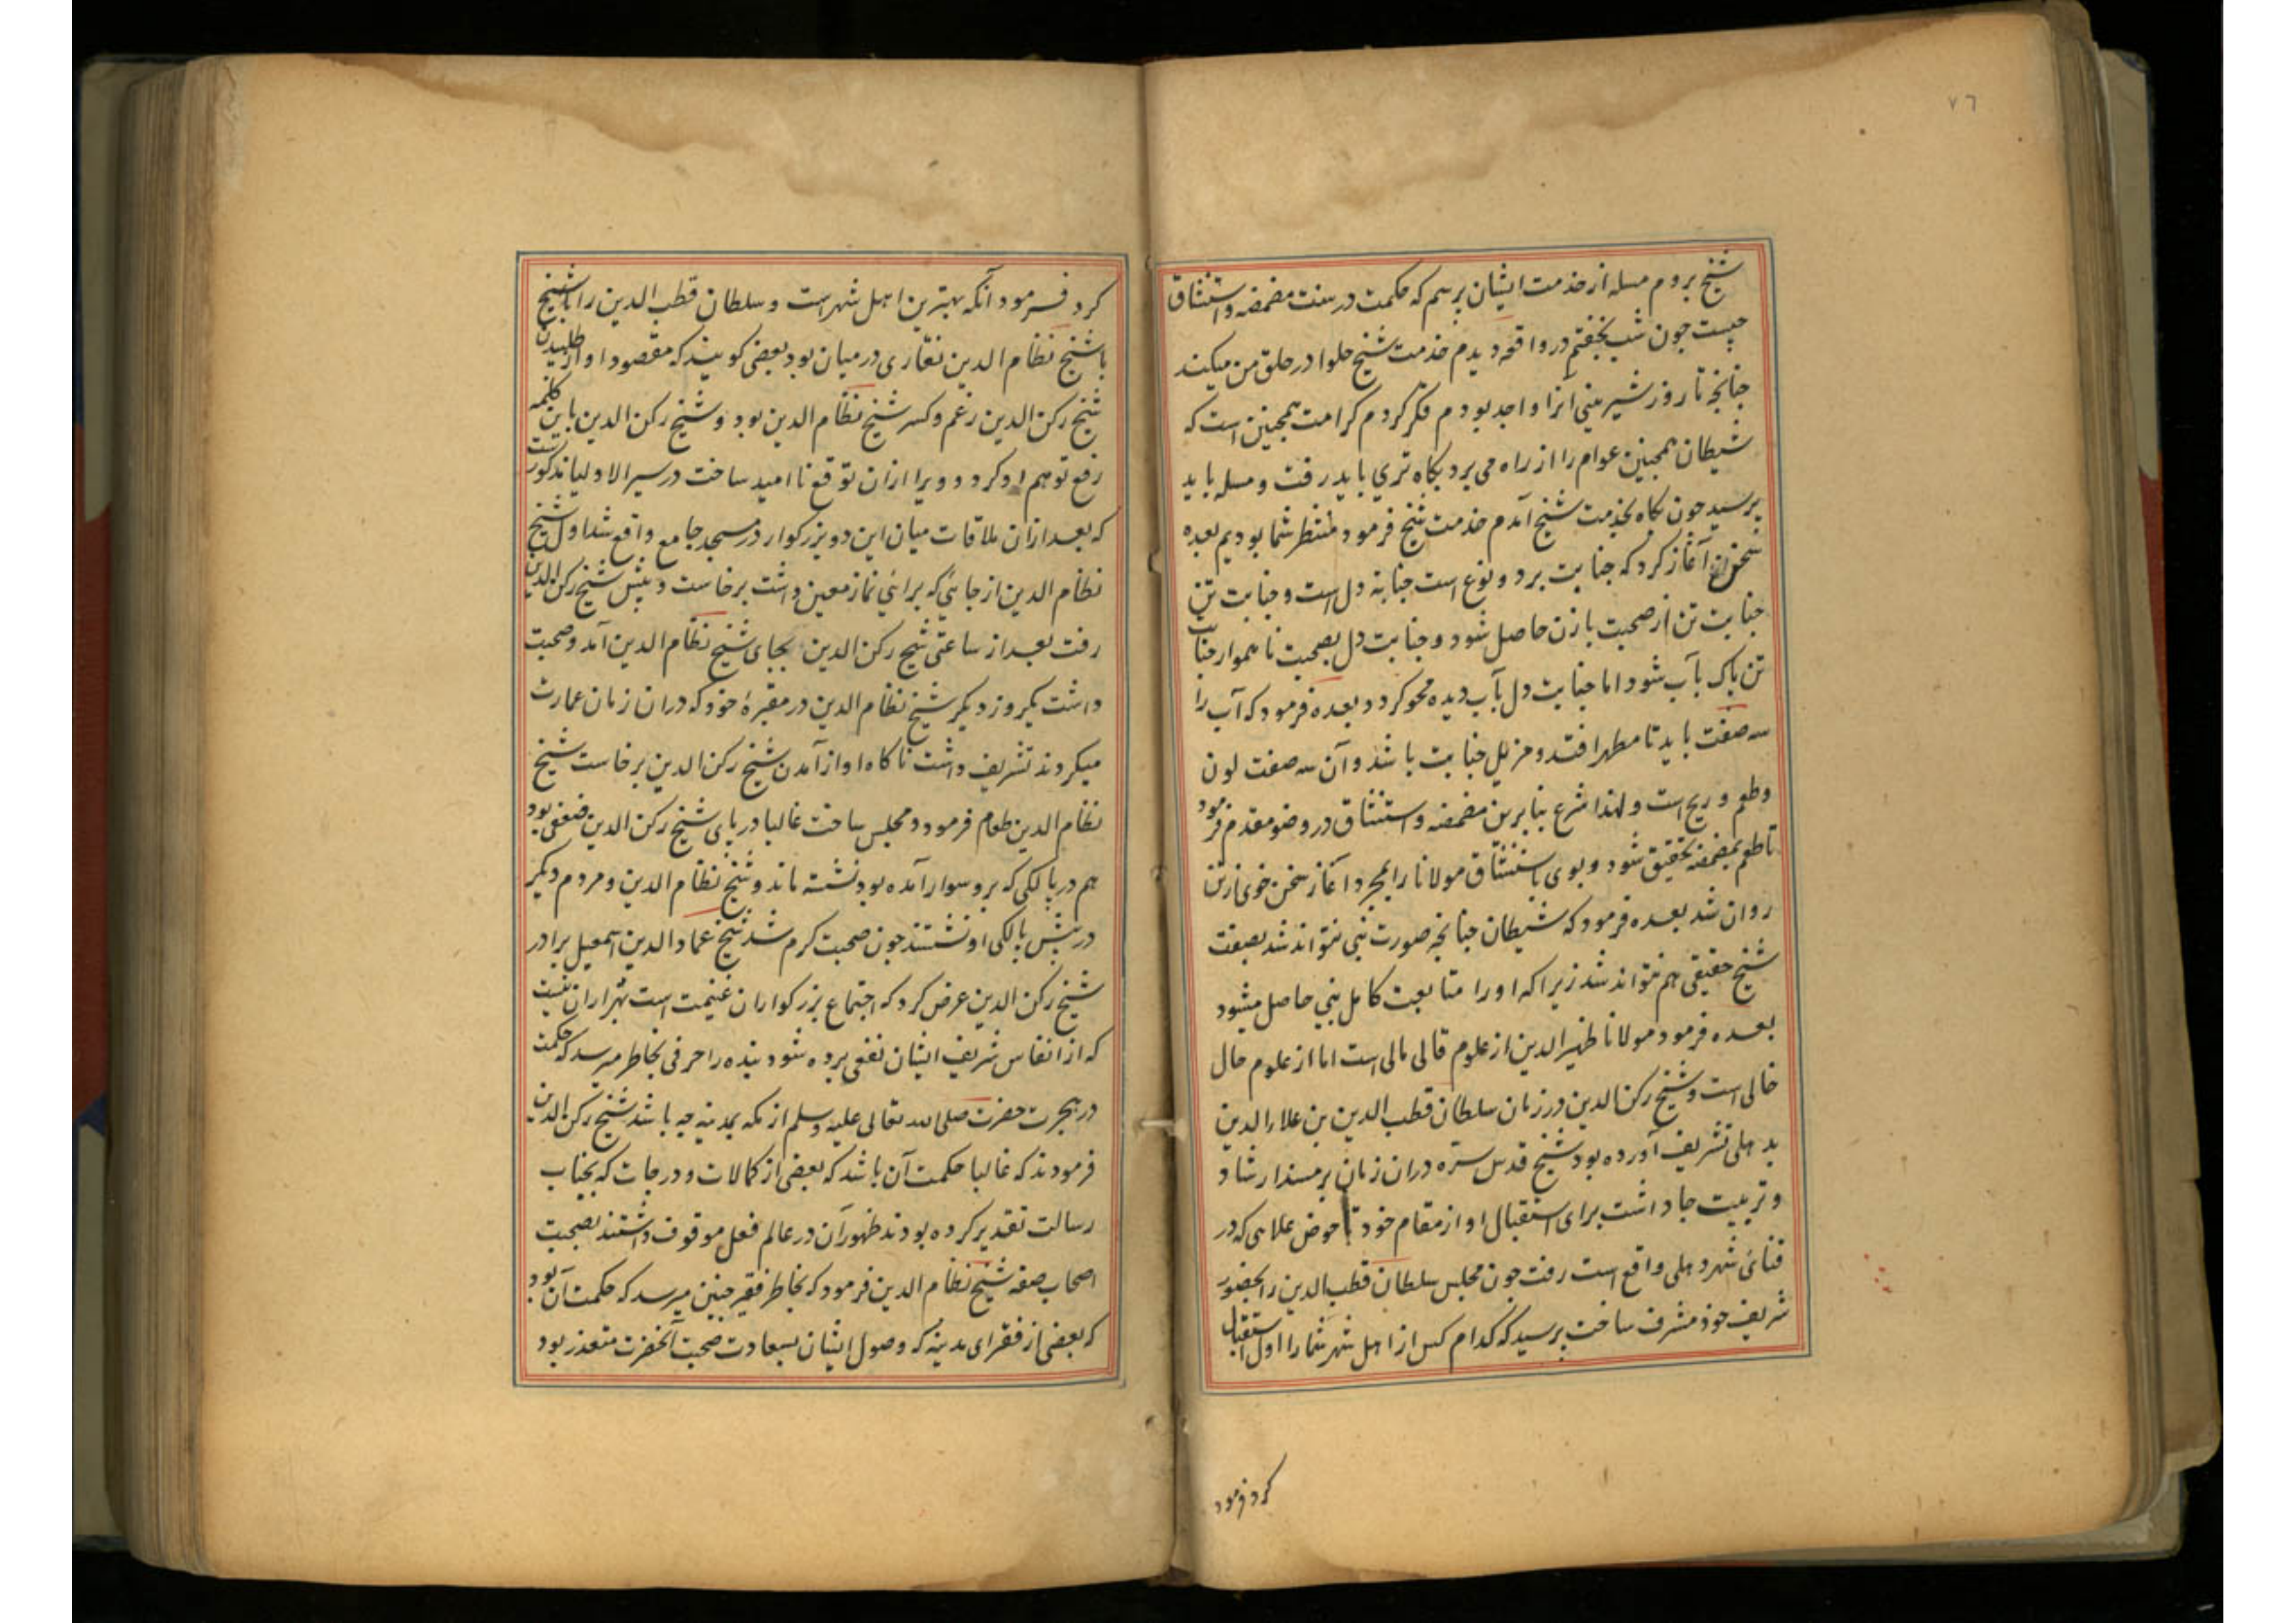 ٧٦
شیخ بروم مسله از خدمت ایشان برسم که حکمت در سنت مضمضه و استنشاق
چیست چون شب بخفتم در واقعه دیدم خدمت شیخ حلوا در حلق من میکند
چنانچه تا روز شیرینی آنرا واجد بودم فکر کردم کرامت همچنین است که
شیطان همچنین عوام را از راه می برد بکاه تری باید رفت و مسله باید
پرسید چون بکاه بخدمت شیخ آمدم خدمت شیخ فرمود منتظر شما بودیم بعده
سخن آغاز کرد که جنابت بر دو نوع است جنابة دل است و جنابت تن
جنابت تن از صحبت با زن حاصل شود و جنابت دل بصحبت ناهموار جنابت
تن پاک بآب شود اما جنابت دل بآب دیده محو کردد بعده فرمود که آب را
سه صفت باید تا مطهر افتد و مزیل جنابت باشد و آن سه صفت لون
و طعم و ریح است و لهذا شرع بنا برین مضمضه و استنشاق در وضو مقدم فرمود
تا طعم بمضمضه تحقیق شود و بوی باستنشاق مولانا را بمجرد آغاز سخن خوی از تن
روان شد بعده فرمود که شیطان چنانچه صورت نبی نتواند شد بصفت
شیخ حقیقی هم نتواند شد زیرا که او را متابعت کامل نبی حاصل میشود
بعده فرمود مولانا ظهیر الدین از علوم قالی مالی است اما از علوم حال
خالی است و شیخ رکن الدین در زمان سلطان قطب الدین بن علاء الدین
بدهلی تشریف آورده بود شیخ قدس سره دران زمان بر مسند ارشاد
و تربیت جا داشت برای استقبال او از مقام خود تا حوض علاهی که در
فنائی شهر دهلی واقع است رفت چون مجلس سلطان قطب الدین را بحضور
شریف خود مشرف ساخت پرسید که کدام کس از اهل شهر شما را اول استقبال
کرد فرمود
کرد فرمود آنکه بهترین اهل شهر است و سلطان قطب الدین را با شیخ
با شیخ نظام الدین نقاری در میان بود بعضی کویند که مقصود او از طلبیدن
شیخ رکن الدین رغم و کسر شیخ نظام الدین بود و شیخ رکن الدین باین کلمه
رفع توهم او کرد و ویرا ازان توقع ناامید ساخت در سیر الاولیا مذکور است
که بعد ازان ملاقات میان این دو بزرکوار در مسجد جامع واقع شد اول شیخ
نظام الدین از جائی که برائی نماز معین داشت برخاست و پیش شیخ رکن الدین
رفت بعد از ساعتی شیخ رکن الدین بجای شیخ نظام الدین آمد و صحبت
داشت یکروز دیکر شیخ نظام الدین در مقبرۀ خود که دران زمان عمارت
میکردند تشریف داشت ناکاه اواز آمدن شیخ رکن الدین برخاست شیخ
نظام الدین طعام فرمود و مجلس ساخت غالبا در پای شیخ رکن الدین ضعفی بود
هم در پالکی که برو سوار آمده بود نشسته ماند و شیخ نظام الدین و مردم دیکر
در پیش پالکی او نشستند چون صحبت کرم شد شیخ عماد الدین اسمعیل برادر
شیخ رکن الدین عرض کرد که اجتماع بزرکواران غنیمت است بهتر ازان نیست
که از انفاس شریف ایشان نفعی برده شود بنده را حرفی بخاطر میرسد که حکمت
در هجرت حضرت صلی الله تعالی علیه وسلم از مکه بمدینه چه باشد شیخ رکن الدین
فرمودند که غالبا حکمت آن باشد که بعضی از کمالات و درجات که بجناب
رسالت تقدیر کرده بودند ظهور آن در عالم فعل موقوف داشتند بصحبت
اصحاب صفه شیخ نظام الدین فرمود که بخاطر فقیر چنین میرسد که حکمت آن بود
که بعضی از فقرای مدینه که وصول ایشان بسعادت صحبت آنحضرت متعذر بود